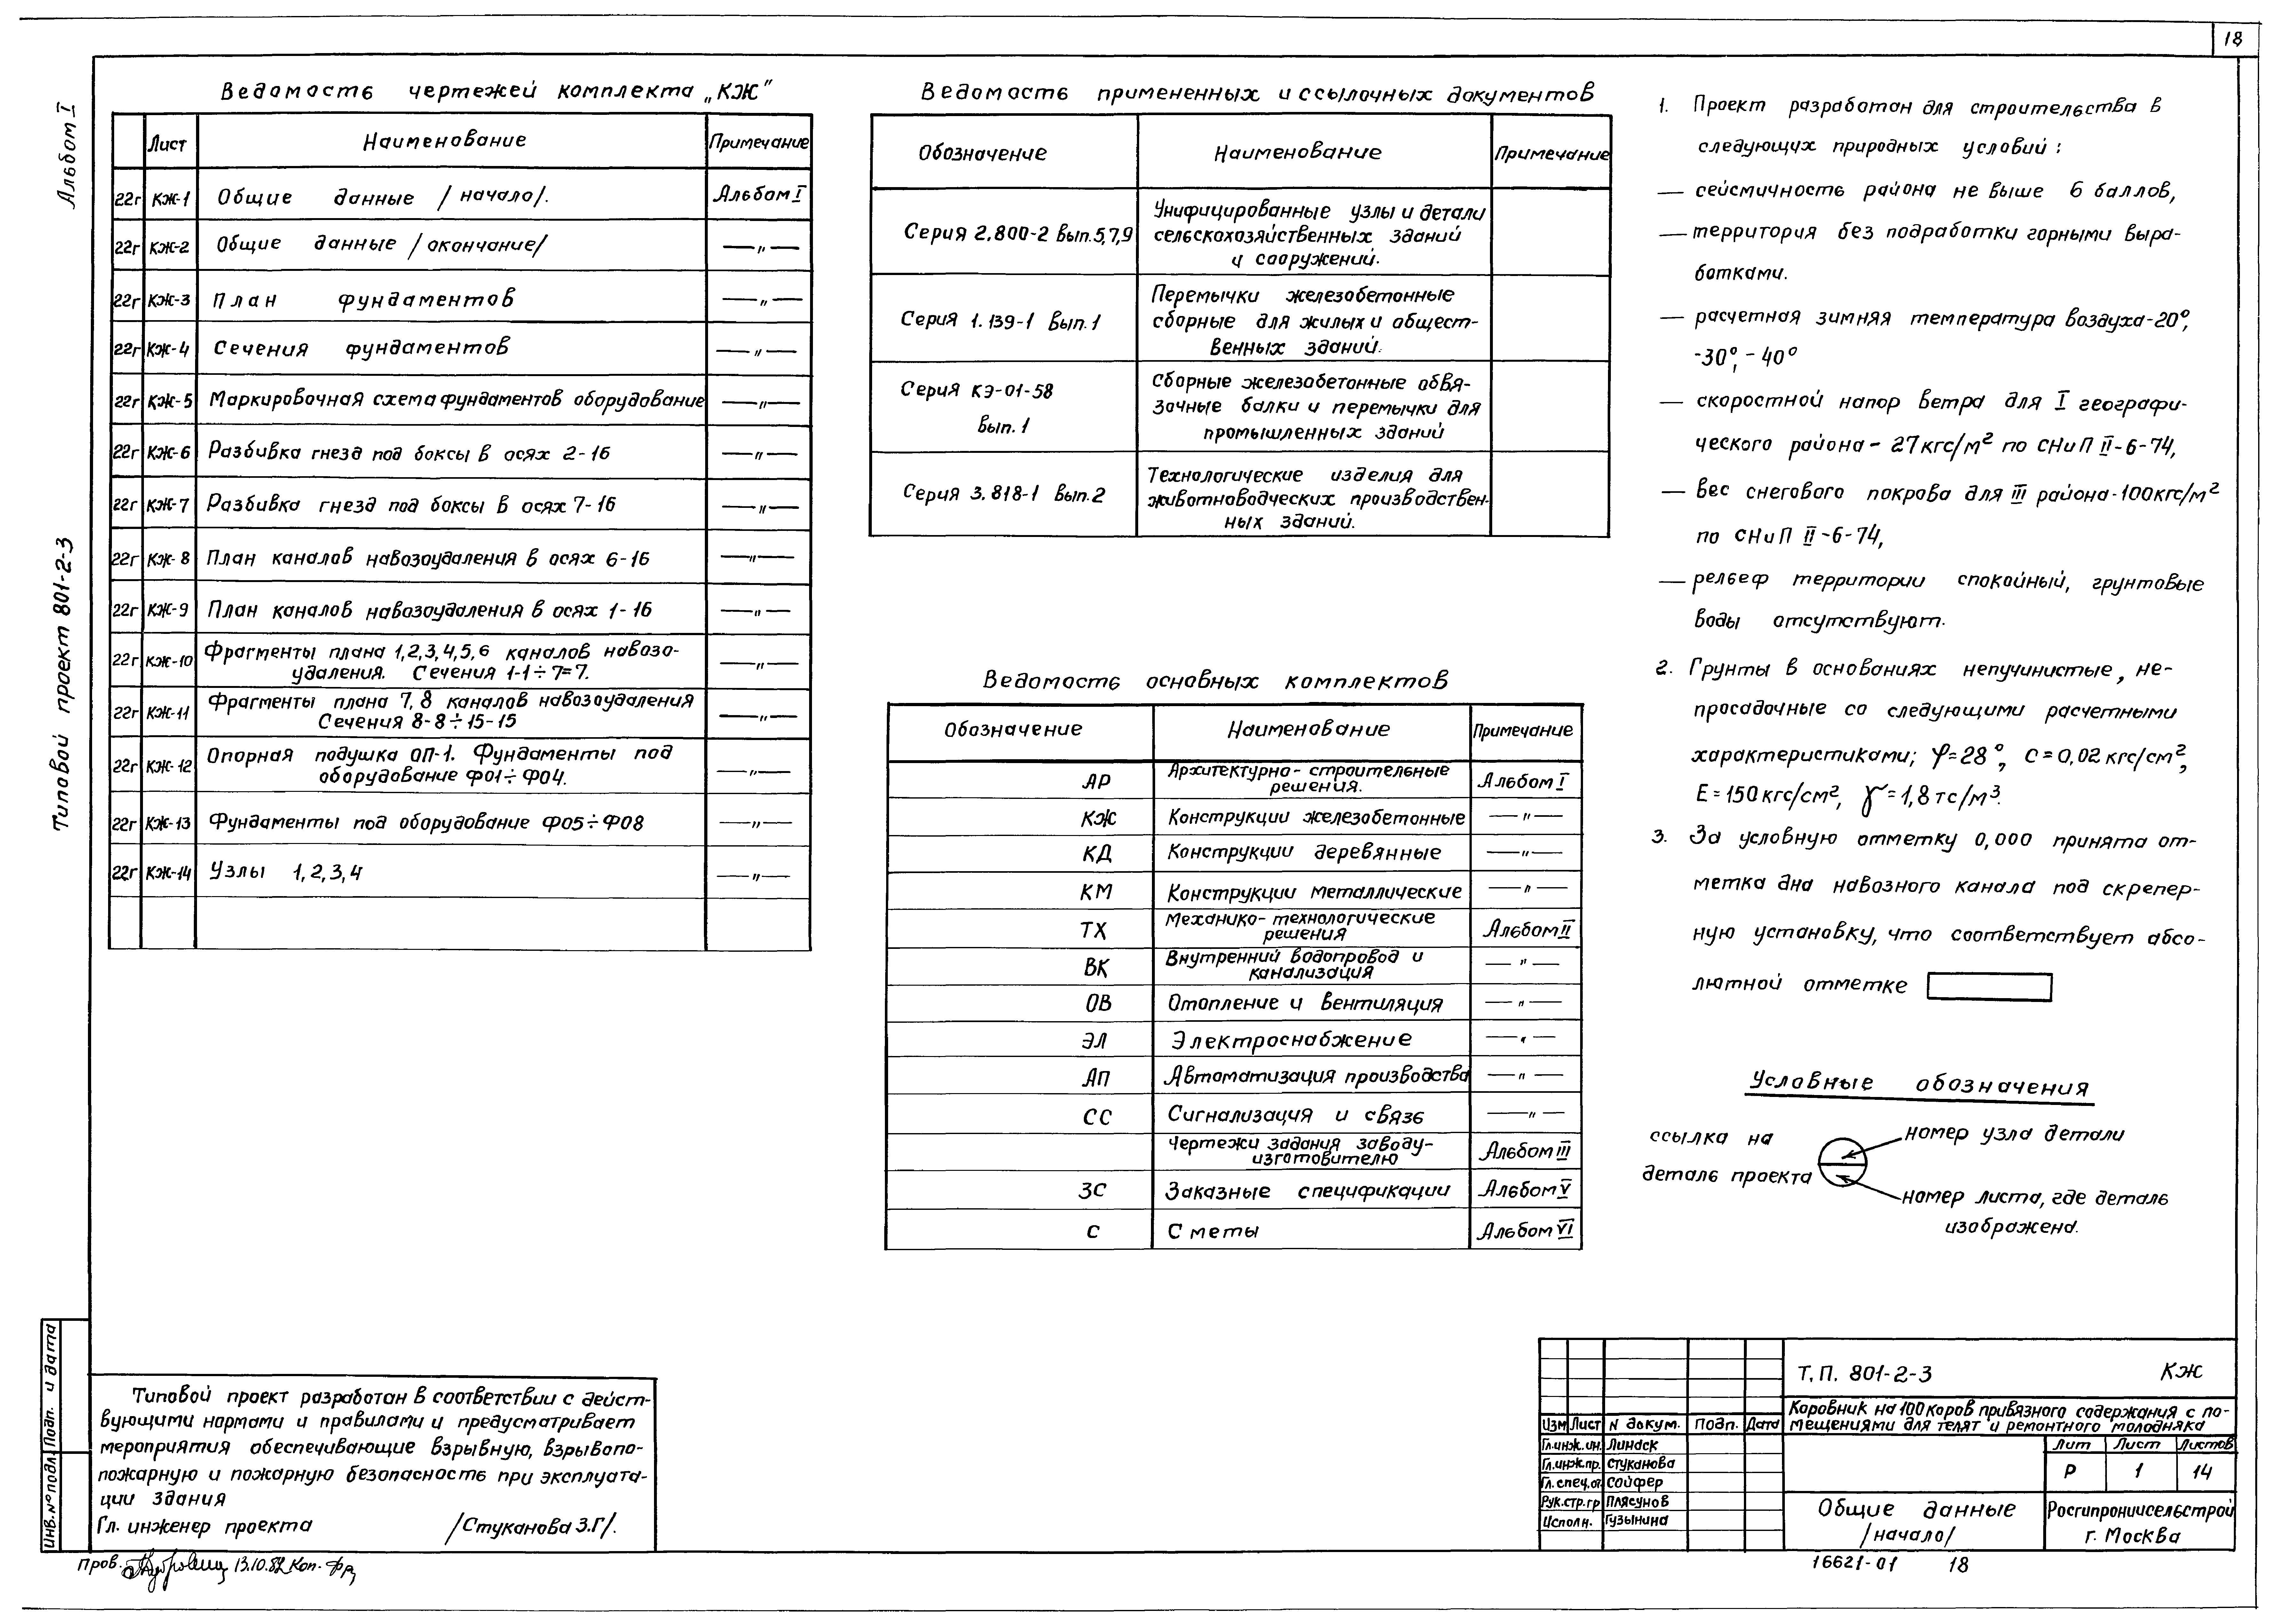 18
Альбом I
Типовой проект 801-2-3
Ведомость чертежей комплекта „КЖ"
Лист Наименование Примечание
22г КЖ-1 Общие данные /начало/. Альбом I
22г КЖ-2 Общие данные /окончание/ —"—
22г КЖ-3 План фундаментов —"—
22г КЖ-4 Сечения фундаментов —"—
22г КЖ-5 Маркировочная схема фундаментов оборудование —"—
22г КЖ-6 Разбивка гнезд под боксы в осях 2-16 —"—
22г КЖ-7 Разбивка гнезд под боксы в осях 7-16 —"—
22г КЖ-8 План каналов навозоудаления в осях 6-16 —"—
22г КЖ-9 План каналов навозоудаления в осях 1-16 —"—
22г КЖ-10 Фрагменты плана 1,2,3,4,5,6 каналов навозо-
удаления. Сечения 1-1÷7=7. —"—
22г КЖ-11 Фрагменты плана 7,8 каналов навозоудаления
Сечения 8-8÷15-15 —"—
22г КЖ-12 Опорная подушка ОП-1. Фундаменты под
оборудование Ф01÷Ф04. —"—
22г КЖ-13 Фундаменты под оборудование Ф05÷Ф08 —"—
22г КЖ-14 Узлы 1,2,3,4 —"—
Ведомость примененных и ссылочных документов
Обозначение Наименование Примечание
Серия 2.800-2 Вып.5,7,9 Унифицированные узлы и детали
сельскохозяйственных зданий
и сооружений.
Серия 1.139-1 Вып.1 Перемычки железобетонные
сборные для жилых и общест-
венных зданий.
Серия КЭ-01-58
Вып.1
Сборные железобетонные обвя-
зочные балки и перемычки для
промышленных зданий
Серия 3.818-1 Вып.2 Технологические изделия для
животноводческих производствен-
ных зданий.
Ведомость основных комплектов
Обозначение Наименование Примечание
АР Архитектурно-строительные
решения. Альбом I
КЖ Конструкции железобетонные —"—
КД Конструкции деревянные —"—
КМ Конструкции металлические —"—
ТХ Механико-технологические
решения Альбом II
ВК Внутренний водопровод и
канализация —"—
ОВ Отопление и вентиляция —"—
ЭЛ Электроснабжение —"—
АП Автоматизация производства —"—
СС Сигнализация и связь —"—
Чертежи задания заводу-
изготовителю Альбом III
ЗС Заказные спецификации Альбом V
С Сметы Альбом VI
1. Проект разработан для строительства в
следующих природных условий:
— сейсмичность района не выше 6 баллов,
— территория без подработки горными выра-
ботками.
— расчетная зимняя температура воздуха-20°,
-30°, -40°
— скоростной напор ветра для I географи-
ческого района - 27кгс/м² по СНиП II-6-74,
— вес снегового покрова для III района-100кгс/м²
по СНиП II-6-74,
— рельеф территории спокойный, грунтовые
воды отсутствуют.
2. Грунты в основаниях непучинистые, не-
просадочные со следующими расчетными
характеристиками; φ=28°, С=0,02кгс/см²,
Е=150кгс/см², γ=1,8тс/м³.
3. За условную отметку 0,000 принята от-
метка дна навозного канала под скрепер-
ную установку, что соответствует абсо-
лютной отметке
Условные обозначения
ссылка на
деталь проекта
номер узла детали
номер листа, где деталь
изображена.
Типовой проект разработан в соответствии с дейст-
вующими нормами и правилами и предусматривает
мероприятия обеспечивающие взрывную, взрывопо-
пожарную и пожарную безопасность при эксплуата-
ции здания
Гл. инженер проекта /Стуканова З.Г/.
Подп. и дата
Инв.№подл.
Пров. 13.10.82 Коп.
Т.П. 801-2-3 КЖ
Коровник на 100 коров привязного содержания с по-
мещениями для телят и ремонтного молодняка
Изм Лист N докум. Подп. Дата
Гл.инж.ин. Линаск
Гл.инж.пр. Стуканова
Гл.спец.от. Сойфер
Рук.стр.гр Плясунов
Исполн. Гузынина
Лит Лист Листов
Р 1 14
Общие данные
/начало/
Росгипрониисельстрой
г. Москва
16621-01 18